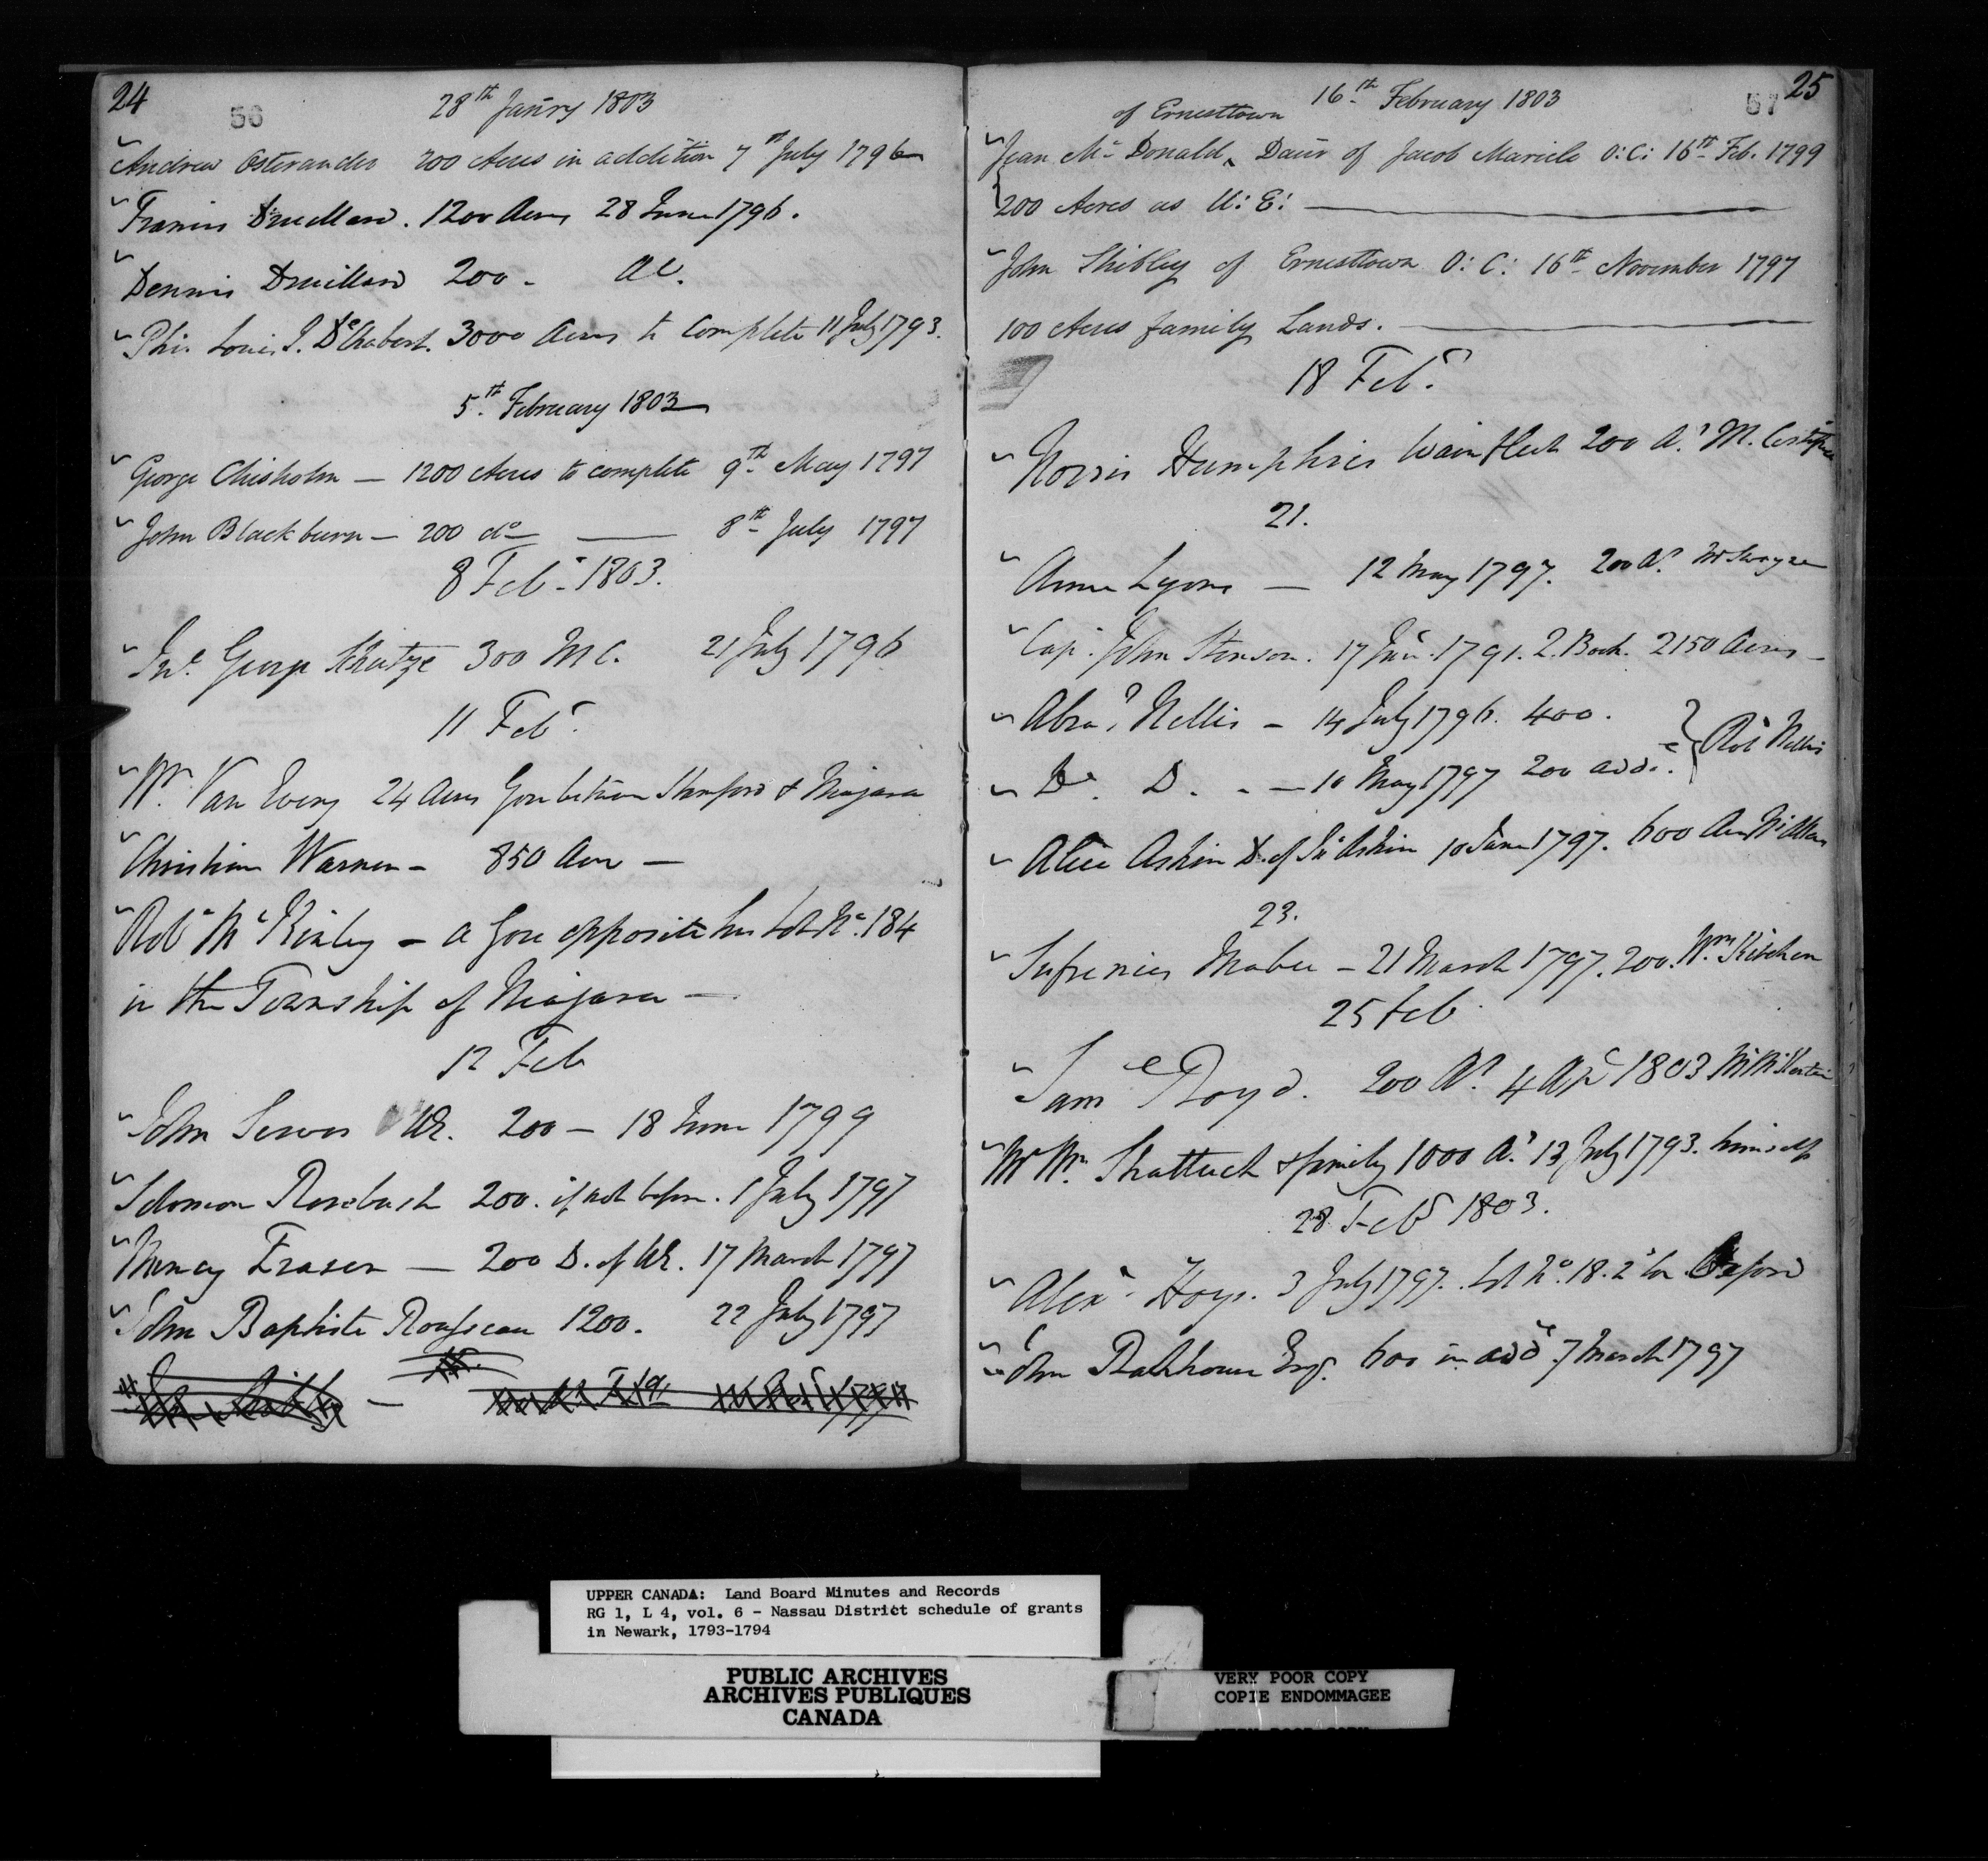 24
56
28th Janry 1803
Andrew Osterander 200 Acres in addition 7th July 1796
Francis Druillard. 1200 Acres 28 June 1796.
Dennis Druillard 200 -
Phi. Louis J. De Chabert. 3000 Acres to complete 11 July 1793.
5th February 1803
George Chisholm — 1200 Acres to complete 9th May 1797
John Blackburn — 200 do — 8th July 1797
8 Feb. 1803.
Jno. George Schutze 300 M C. 21 July 1796
11 Feb.
Wm. Van Every 24 Acres Gore between Stamford & Niagara
Christian Warner - 850 Acres —
Robt. McKinley - a Gore opposite his Lot No. 184
in the Township of Niagara —
12 Feb
John Servos UE. 200 — 18 June 1799
Solomon Rosebush 200. if not before. 1 July 1797
Nancy Fraser — 200 D. of UE. 17 March 1797
John Baptiste Rousseau 1200. 22 July 1797
25
57
16th February 1803
of Ernesttown
Jean Mc Donald ^ Daur of Jacob Maricle O: C: 16th Feb. 1799
200 Acres as U: E: —
John Shibley of Ernesttown O: C: 16th November 1797
100 Acres family Lands. —
18 Feb.
Norris Humphries Wainfleet 200 As. M. Certificate
21.
Anne Lyons — 12 May 1797. 200 As. Mr Swayze
Capt. John Stinson. 17 1791. 2. Book. 2150 Acres —
Abrm. Nellis — 14 July 1796. 400.
Do. D. - — 10 May 1797 200 addl. } Robt Nellis
Alice Askin D. of Jn Askin 10 June 1797. 600 Acres
23.
Sufrenius Mabee — 21 March 1797. 200. Wm Kitchen
25 Feb
Saml Boyd. 200 As. 4 1803
Mr Wm. Shattuck & family 1000 As. 13 July 1793. himself
28. Feb 1803.
Alexr. Hoys. 3 July 1797. Lot No. 18. 2d Con
John Backhouse Esqr. 600 in addn. 7 March 1797
UPPER CANADA: Land Board Minutes and Records
RG 1, L 4, vol. 6 - Nassau District schedule of grants
in Newark, 1793-1794
PUBLIC ARCHIVES
ARCHIVES PUBLIQUES
CANADA
VERY POOR COPY
COPIE ENDOMMAGEE